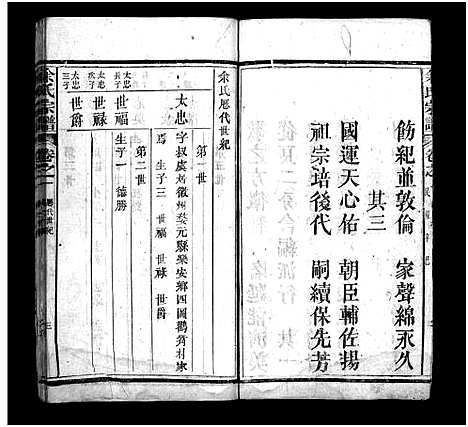 余氏宗譜
飭紀並敦倫 家聲綿永久
其三
國運天心佑 朝臣輔佐揚
祖宗培後代 嗣續保先芳
余氏歷代世紀
第一世
太忠 字叔虞徽州婺元縣樂安鄉四圖鸛村家
焉 生子三 世福 世禄 世爵
第二世
太忠長子 世福 生子一 德勝
太忠次子 世禄
太忠三子 世爵
余氏宗譜 卷之一 歷代世紀